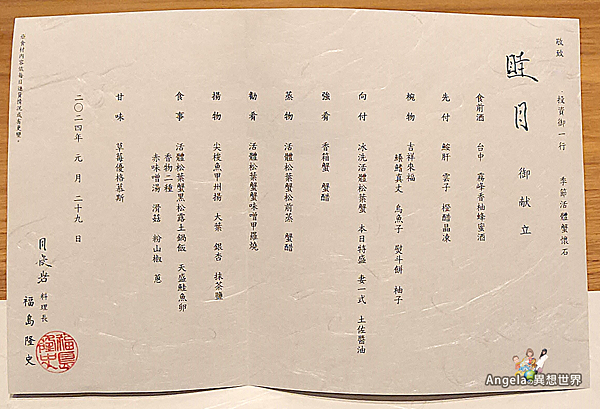 敬致
投資御一行
季節活體蟹懷石
睦月
御献立
食前酒 台中 霧峰香柚蜂蜜酒
先付 鮟肝 雲子 橙醋晶凍
椀物 吉祥來福
緑鰭真丈 烏魚子 熨斗餅 柚子
向付 冰洗活體松葉蟹 本日特盛 妻一式 土佐醬油
強肴 香箱蟹 蟹醋
蒸物 活體松葉蟹松前蒸 蟹醋
勸肴 活體松葉蟹蟹味噌甲羅燒
揚物 尖梭魚甲州揚 大葉 銀杏 抹茶鹽
食事 活體松葉蟹黑松露土鍋飯 天盛鮭魚卵
香物二種
赤味噌湯 滑菇 粉山椒 蔥
甘味 草莓優格慕斯
二〇二四年 元月 二十九日
料理長
福島隆史
※食材內容依每日進貨情況或有更變。
Angela異想世界